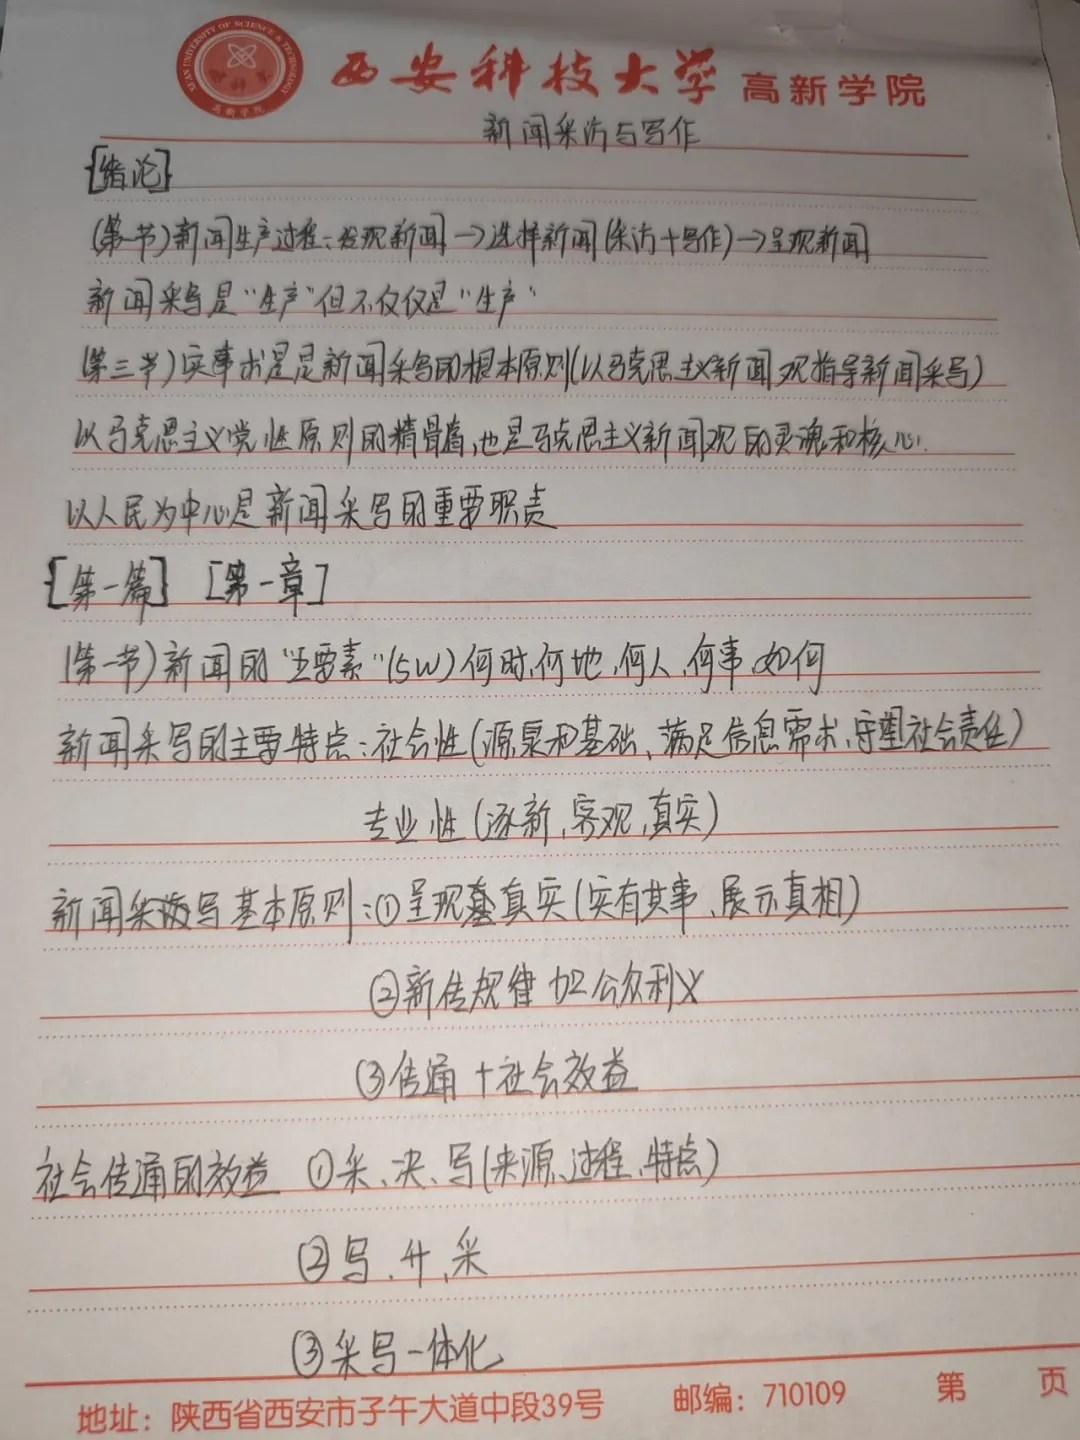 XI'AN UNIVERSITY OF SCIENCE & TECHNOLOGY
高新学院
西安科技大学 高新学院
新闻采访与写作
[绪论]
(第一节)新闻生产过程:发现新闻→选择新闻(采访+写作)→呈现新闻
新闻采写是“生产”但不仅仅是“生产”
(第三节)实事求是是新闻采写的根本原则(以马克思主义新闻观指导新闻采写)
以马克思主义党性原则的精骨髓,也是马克思主义新闻观的灵魂和核心.
以人民为中心是新闻采写的重要职责
[第一篇] [第一章]
(第一节)新闻的“五要素”(5W)何时,何地,何人,何事,如何
新闻采写的主要特点:社会性(源泉和基础、满足信息需求、守望社会责任)
专业性(逐新,客观,真实)
新闻采写基本原则:①呈现真实(实有其事、展示真相)
②新传规律 加 公众利义
③传通+社会效益
社会传通的效益 ①采、决、写(来源、过程、特点)
②写、升、采
③采写一体化
地址:陕西省西安市子午大道中段39号 邮编:710109 第 页